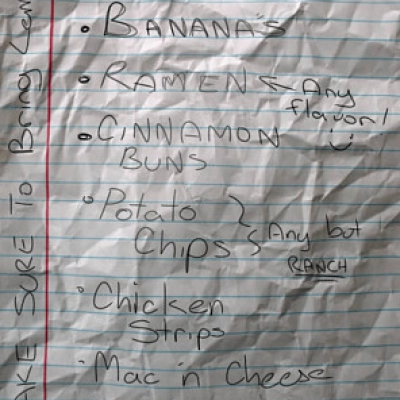 • BANANA'S
• RAMEN ← Any
flavor!
• CINNAMON
BUNS
• Potato
Chips } Any but
RANCH
• Chicken
Strips
• Mac 'n Cheese
SURE TO Bring